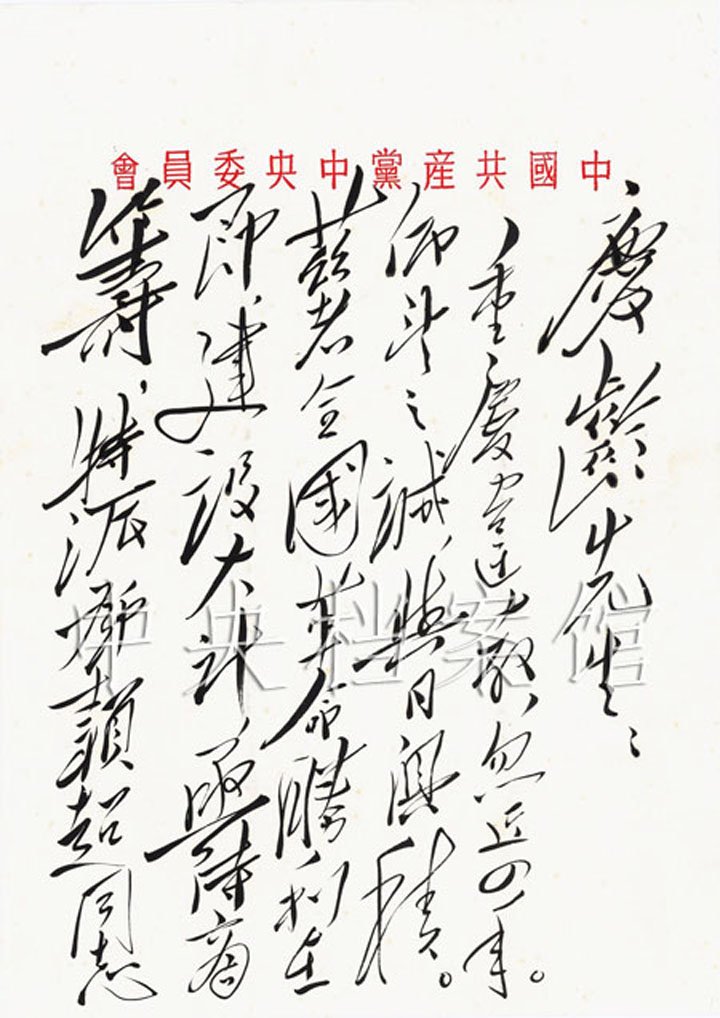 中國共産黨中央委員會
慶齡先生：
重慶違教，忽近四年。
仰望之誠，與日俱積。
兹者全國革命勝利在
即，建設大計，亟待商
籌，特派鄧穎超同志
中央档案馆